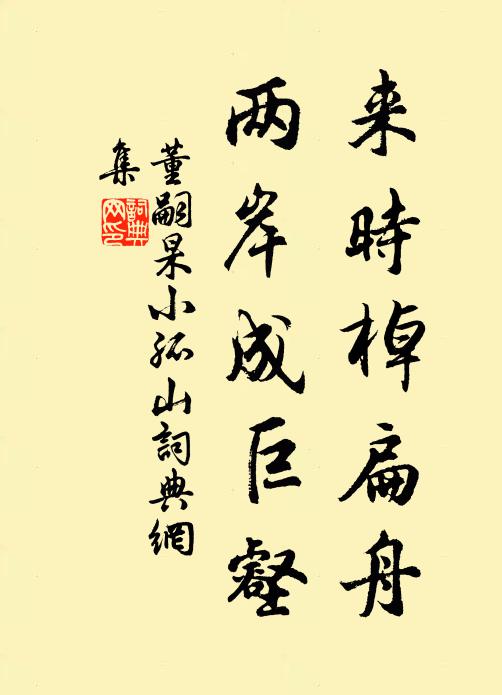 来時棹扁舟
两岸成巨壑
董嗣杲小孤山詞典網
集
詞典
网印